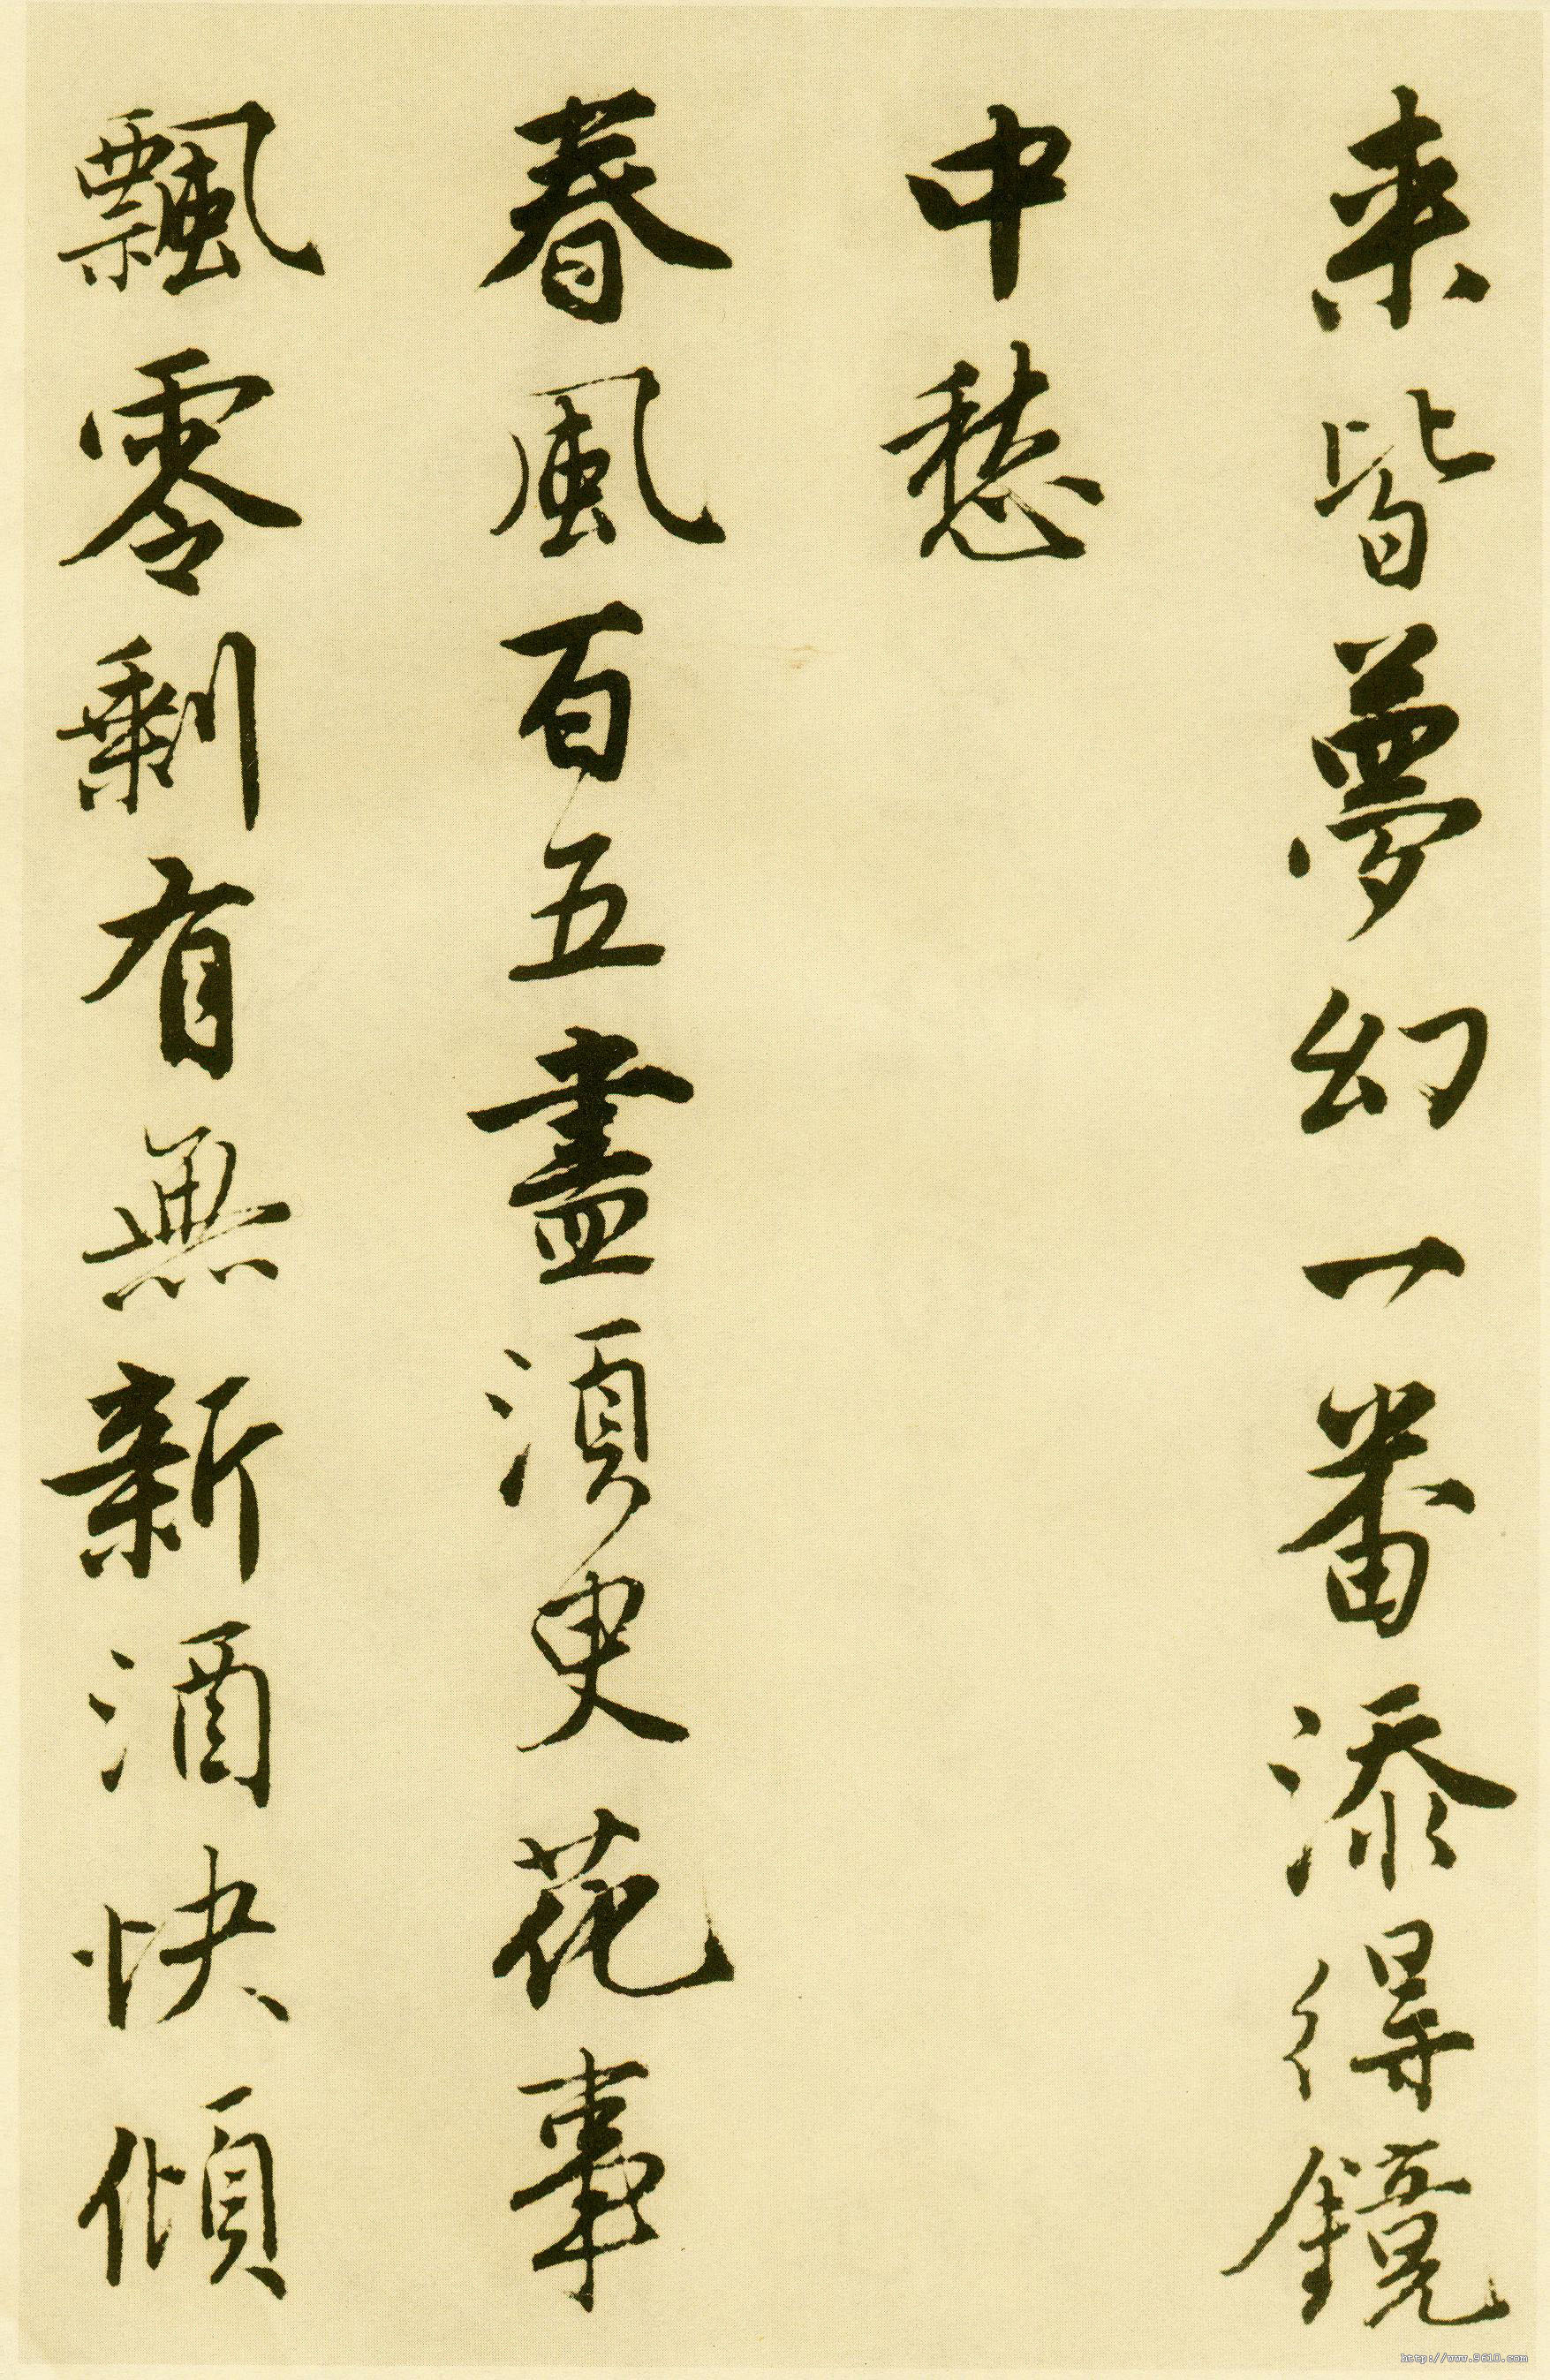 来皆夢幻一番添得鏡
中愁
春風百五盡須臾花事
飄零剩有無新酒快傾
http://www.9610.com